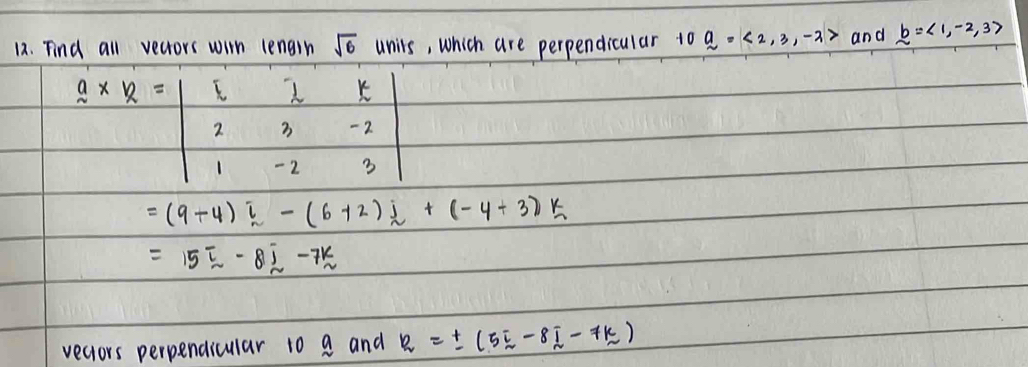 12. Find all vectors with length √6 units, which are perpendicular to a = <2, 3, -2> and b = <1, -2, 3>
a × b = | i j k |
2 3 -2
1 -2 3
= (9-4) i - (6+2) j + (-4-3) k
= 15i - 8j - 7k
vectors perpendicular to a and b = ± (5i - 8j - 7k)